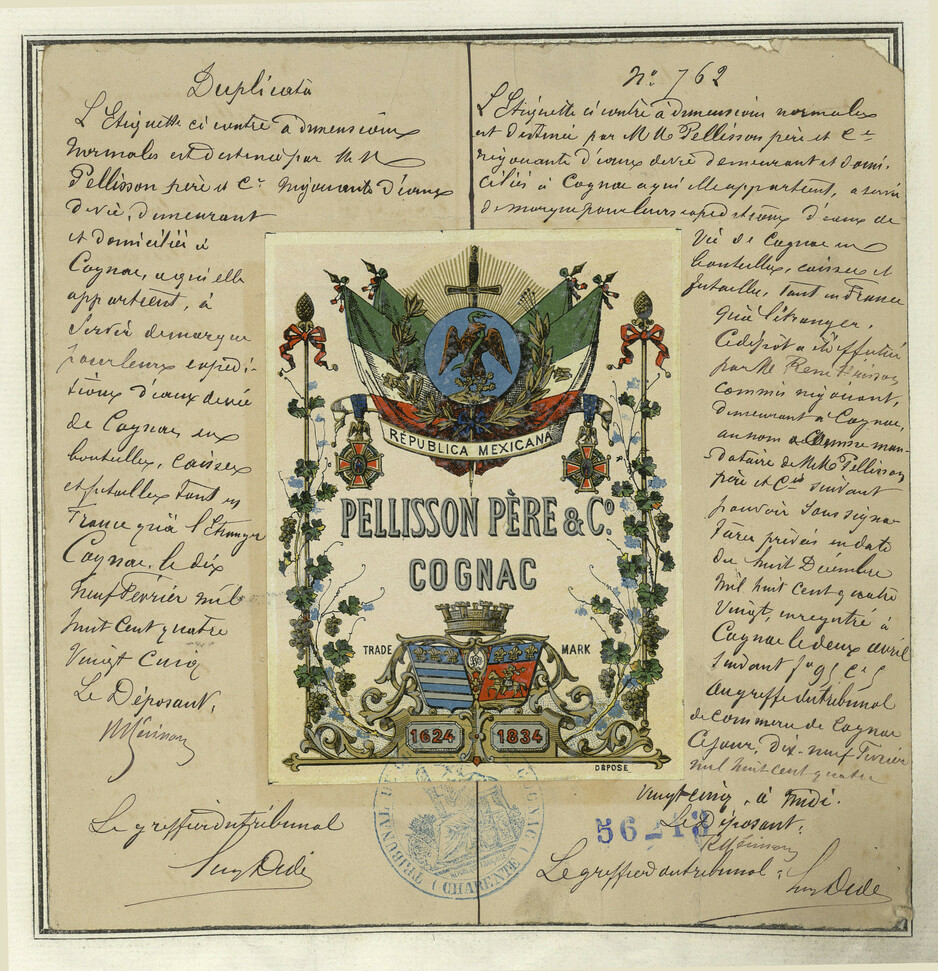 Duplicata
L'Etiquette ci contre à dimensions
normales est destinée par M M
Pellisson père et Cie négociants d'eaux
de vie, demeurant
et domiciliés à
Cognac, à qui elle
appartient, à
servir de marque
pour leurs expédi-
tions d'eaux de vie
de Cognac, en
bouteilles, caisses
et futailles tant en
France qu'à l'Etranger
Cognac, le dix
neuf Février mil
huit cent quatre
Vingt Cinq
Le Déposant,
Le greffier du tribunal
No 762
L'Etiquette ci contre à dimensions normales
est destinée par M M Pellisson père et Cie
négociants d'eaux de vie demeurant et domi-
ciliés à Cognac à qui elle appartient, à servir
de marque pour leurs expéditions d'eaux de
Vie de Cognac en
bouteilles, caisses et
futailles, tant en France
qu'à l'étranger.
Ce dépôt a été effectué
par Mr René
commis négociant,
demeurant à Cognac,
au nom et comme man-
dataire de MM Pellisson
père et Cie suivant
pouvoir sous signa-
tures privées en date
du huit Décembre
mil huit cent quatre
Vingt, enregistré à
Cognac le deux avril
suivant fo 95 Co 5
au greffe du tribunal
de commerce de Cognac
Ce jour, dix-neuf Février
mil huit cent quatre
Vingt cinq, à midi.
Le Déposant,
Le greffier du tribunal
REPUBLICA MEXICANA
PELLISSON PÈRE & Co.
COGNAC
TRADE MARK
1624 1834
DÉPOSÉ
TRIBUNAL DE COGNAC
(CHARENTE)